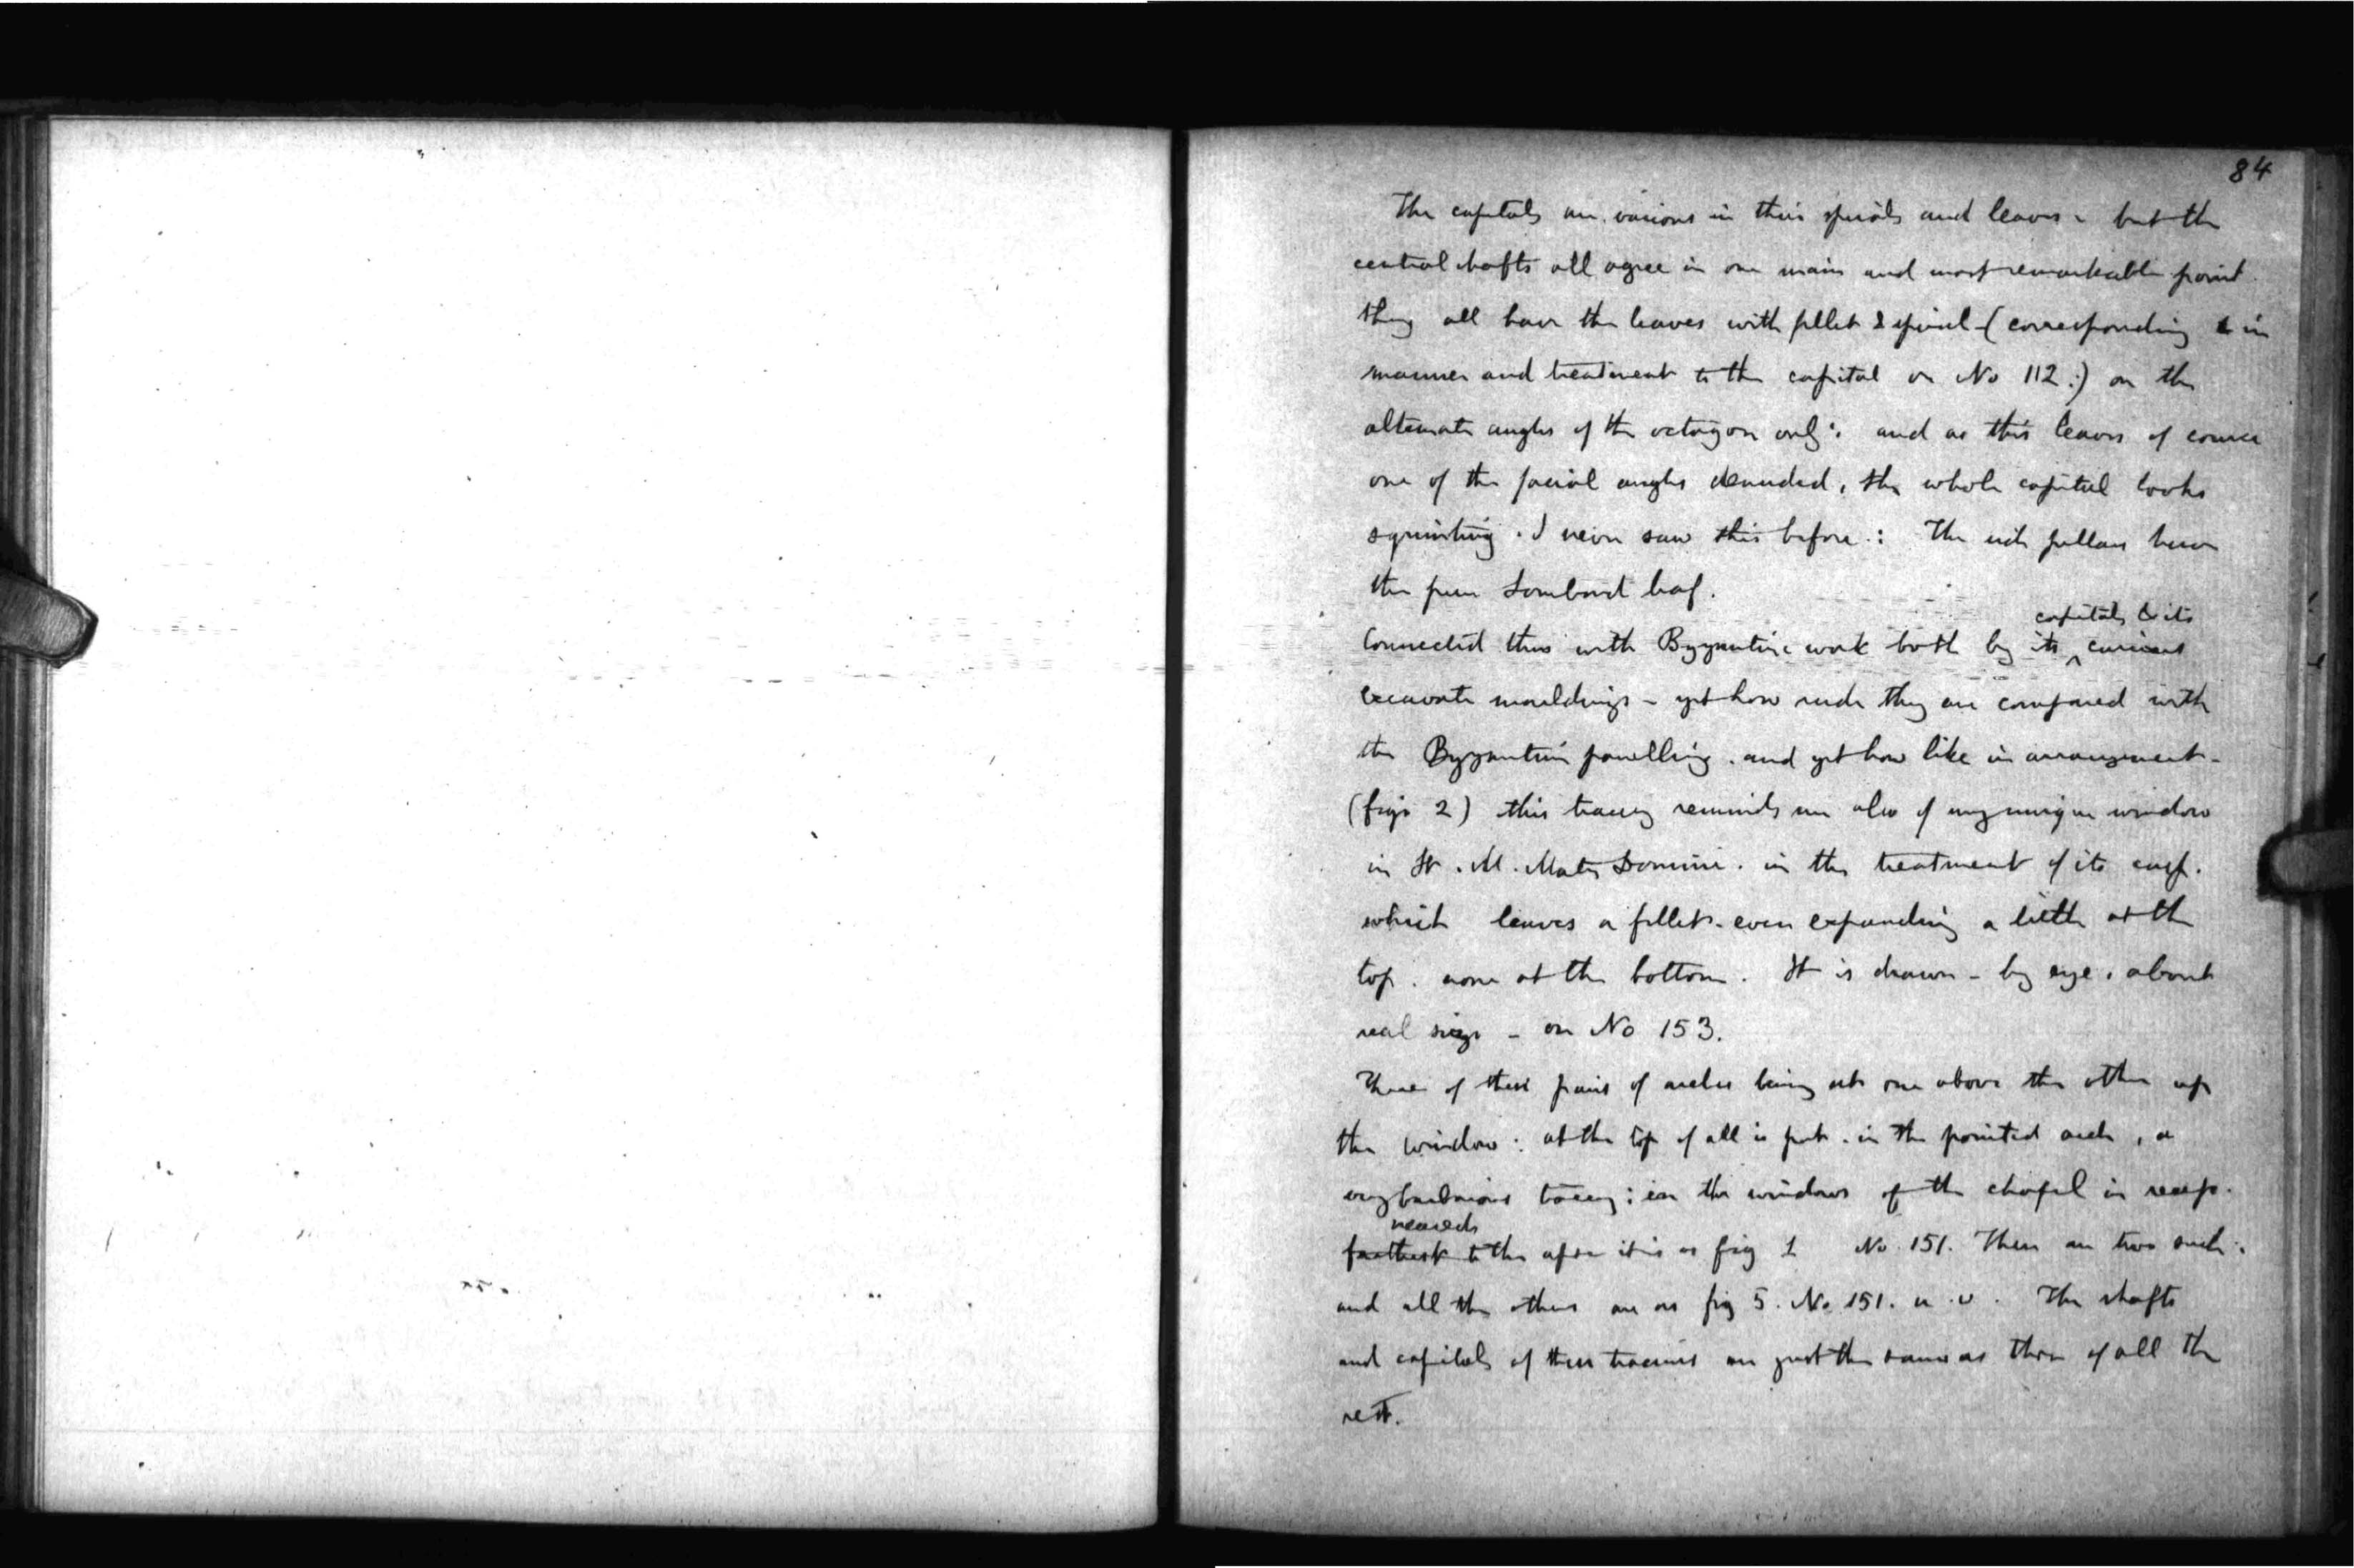 84
The capitals are various in their spirals and leaves - but the
central shafts all agree in one main and most remarkable point
they all have the leaves with fillet & spiral - (corresponding in
manner and treatment to the capital on No 112.) on the
alternate angles of the octagon only: and as this leaves of course
one of the facial angles denuded, the whole capital looks
squinting. I never saw this before.: The side pillars have
the pure Lombard leaf.
capitals & its
Connected thus with Byzantine work both by its ^ curious
excavate mouldings - yet how rude they are compared with
the Byzantine panelling. and yet how like in arrangement -
(figs 2) this tracery reminds me also of my unique window
in St. M. Mater Domini. in the treatment of its cusp.
which leaves a fillet. even expanding a little at the
top. none at the bottom. It is drawn - by eye. about
real size - on No 153.
Three of these pairs of arches being set one above the other up
the window: at the top of all is put. in the pointed arch, a
very barbarous tracery: in the windows of the chapel in
nearest
farthest to the apse it is as fig 1 No. 151. There are two such:
and all the others are as fig 5. No 151. The shafts
and capitals of these traceries are just the same as those of all the
rest.